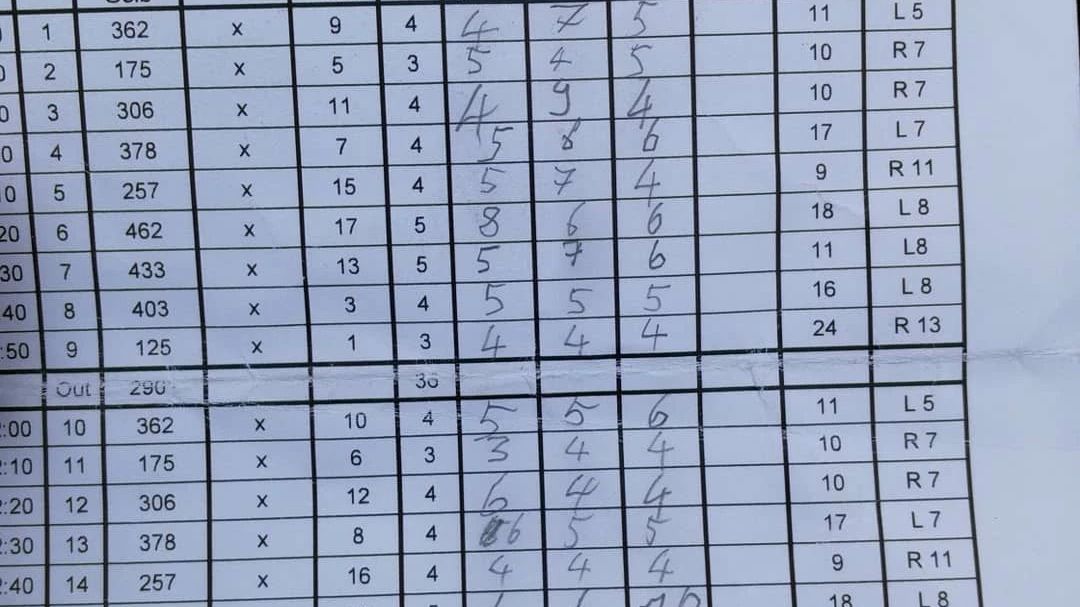 1 362 x 9 4 4 7 5 11 L 5
2 175 x 5 3 5 4 5 10 R 7
0 3 306 x 11 4 4 9 4 10 R 7
0 4 378 x 7 4 5 8 6 17 L 7
10 5 257 x 15 4 5 7 4 9 R 11
20 6 462 x 17 5 8 6 6 18 L 8
30 7 433 x 13 5 5 7 6 11 L8
:40 8 403 x 3 4 5 5 5 16 L 8
:50 9 125 x 1 3 4 4 4 24 R 13
Out 290 36
:00 10 362 x 10 4 5 5 6 11 L 5
:10 11 175 x 6 3 3 4 4 10 R 7
:20 12 306 x 12 4 6 4 4 10 R 7
:30 13 378 x 8 4 6 5 5 17 L 7
:40 14 257 x 16 4 4 4 4 9 R 11
18 L 8